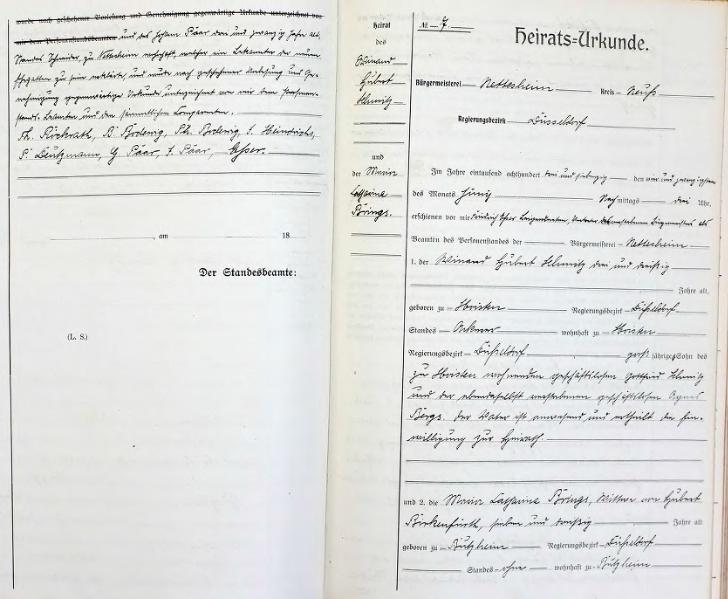 wurde nach geschehener Vorlesung und Genehmigung gegenwärtige Urkunde unterzeichnet von
und des Johann Päar drei und zwanzig Jahre alt,
Standes Schneider, zu Nettesheim wohnhaft, welcher ein Bekannter der neuen
Ehegatten zu sein erklärte, und wurde nach geschehener Vorlesung und Ge-
nehmigung gegenwärtige Urkunde unterzeichnet von mir dem Personen-
stands-Beamten und den sämmtlichen Comparenten.
Th. Kirkrath, Broderig, Th. Broderig, J. Heinrichs,
P. Leutzmann, G Päar, J. Päar, Esser.
, am 18
Der Standesbeamte:
(L. S.)
Heirat
des
Winand
Hubert
Schmitz
und
der Maria
Catharina
Brings.
№ 7
Heirats-Urkunde.
Bürgermeisterei Nettesheim Kreis Neuß
Regierungsbezirk Düsseldorf
Im Jahre eintausend achthundert drei und siebenzig den vier und zwanzigsten
des Monats Juny Nachmittags drei Uhr,
erschienen vor mir Beigeordneten, Bürgermeisters als
Beamten des Personenstandes der Bürgermeisterei Nettesheim
1. der Winand Hubert Schmitz drei und dreißig
Jahre alt,
geboren zu Hoisten Regierungsbezirk Düsseldorf
Standes Ackerer wohnhaft zu Hoisten
Regierungsbezirk Düsseldorf großjähriger Sohn des
zu Hoisten wohnenden geschäftslosen Gottfried Schmitz
und der ebendaselbst verstorbenen geschäftslosen Agnes
Bergs. Der Vater ist anwesend und ertheilt die Ein-
willigung zur Heirath
und 2. die Maria Catharina Brings, Wittwe von Hubert
Birkenfürth, sieben und dreißig Jahre alt
geboren zu Bützheim Regierungsbezirk Düsseldorf
Standes ohne wohnhaft zu Bützheim